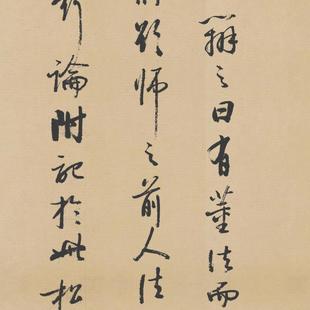 辯之曰有董法而
師之前人法
論附記於此松